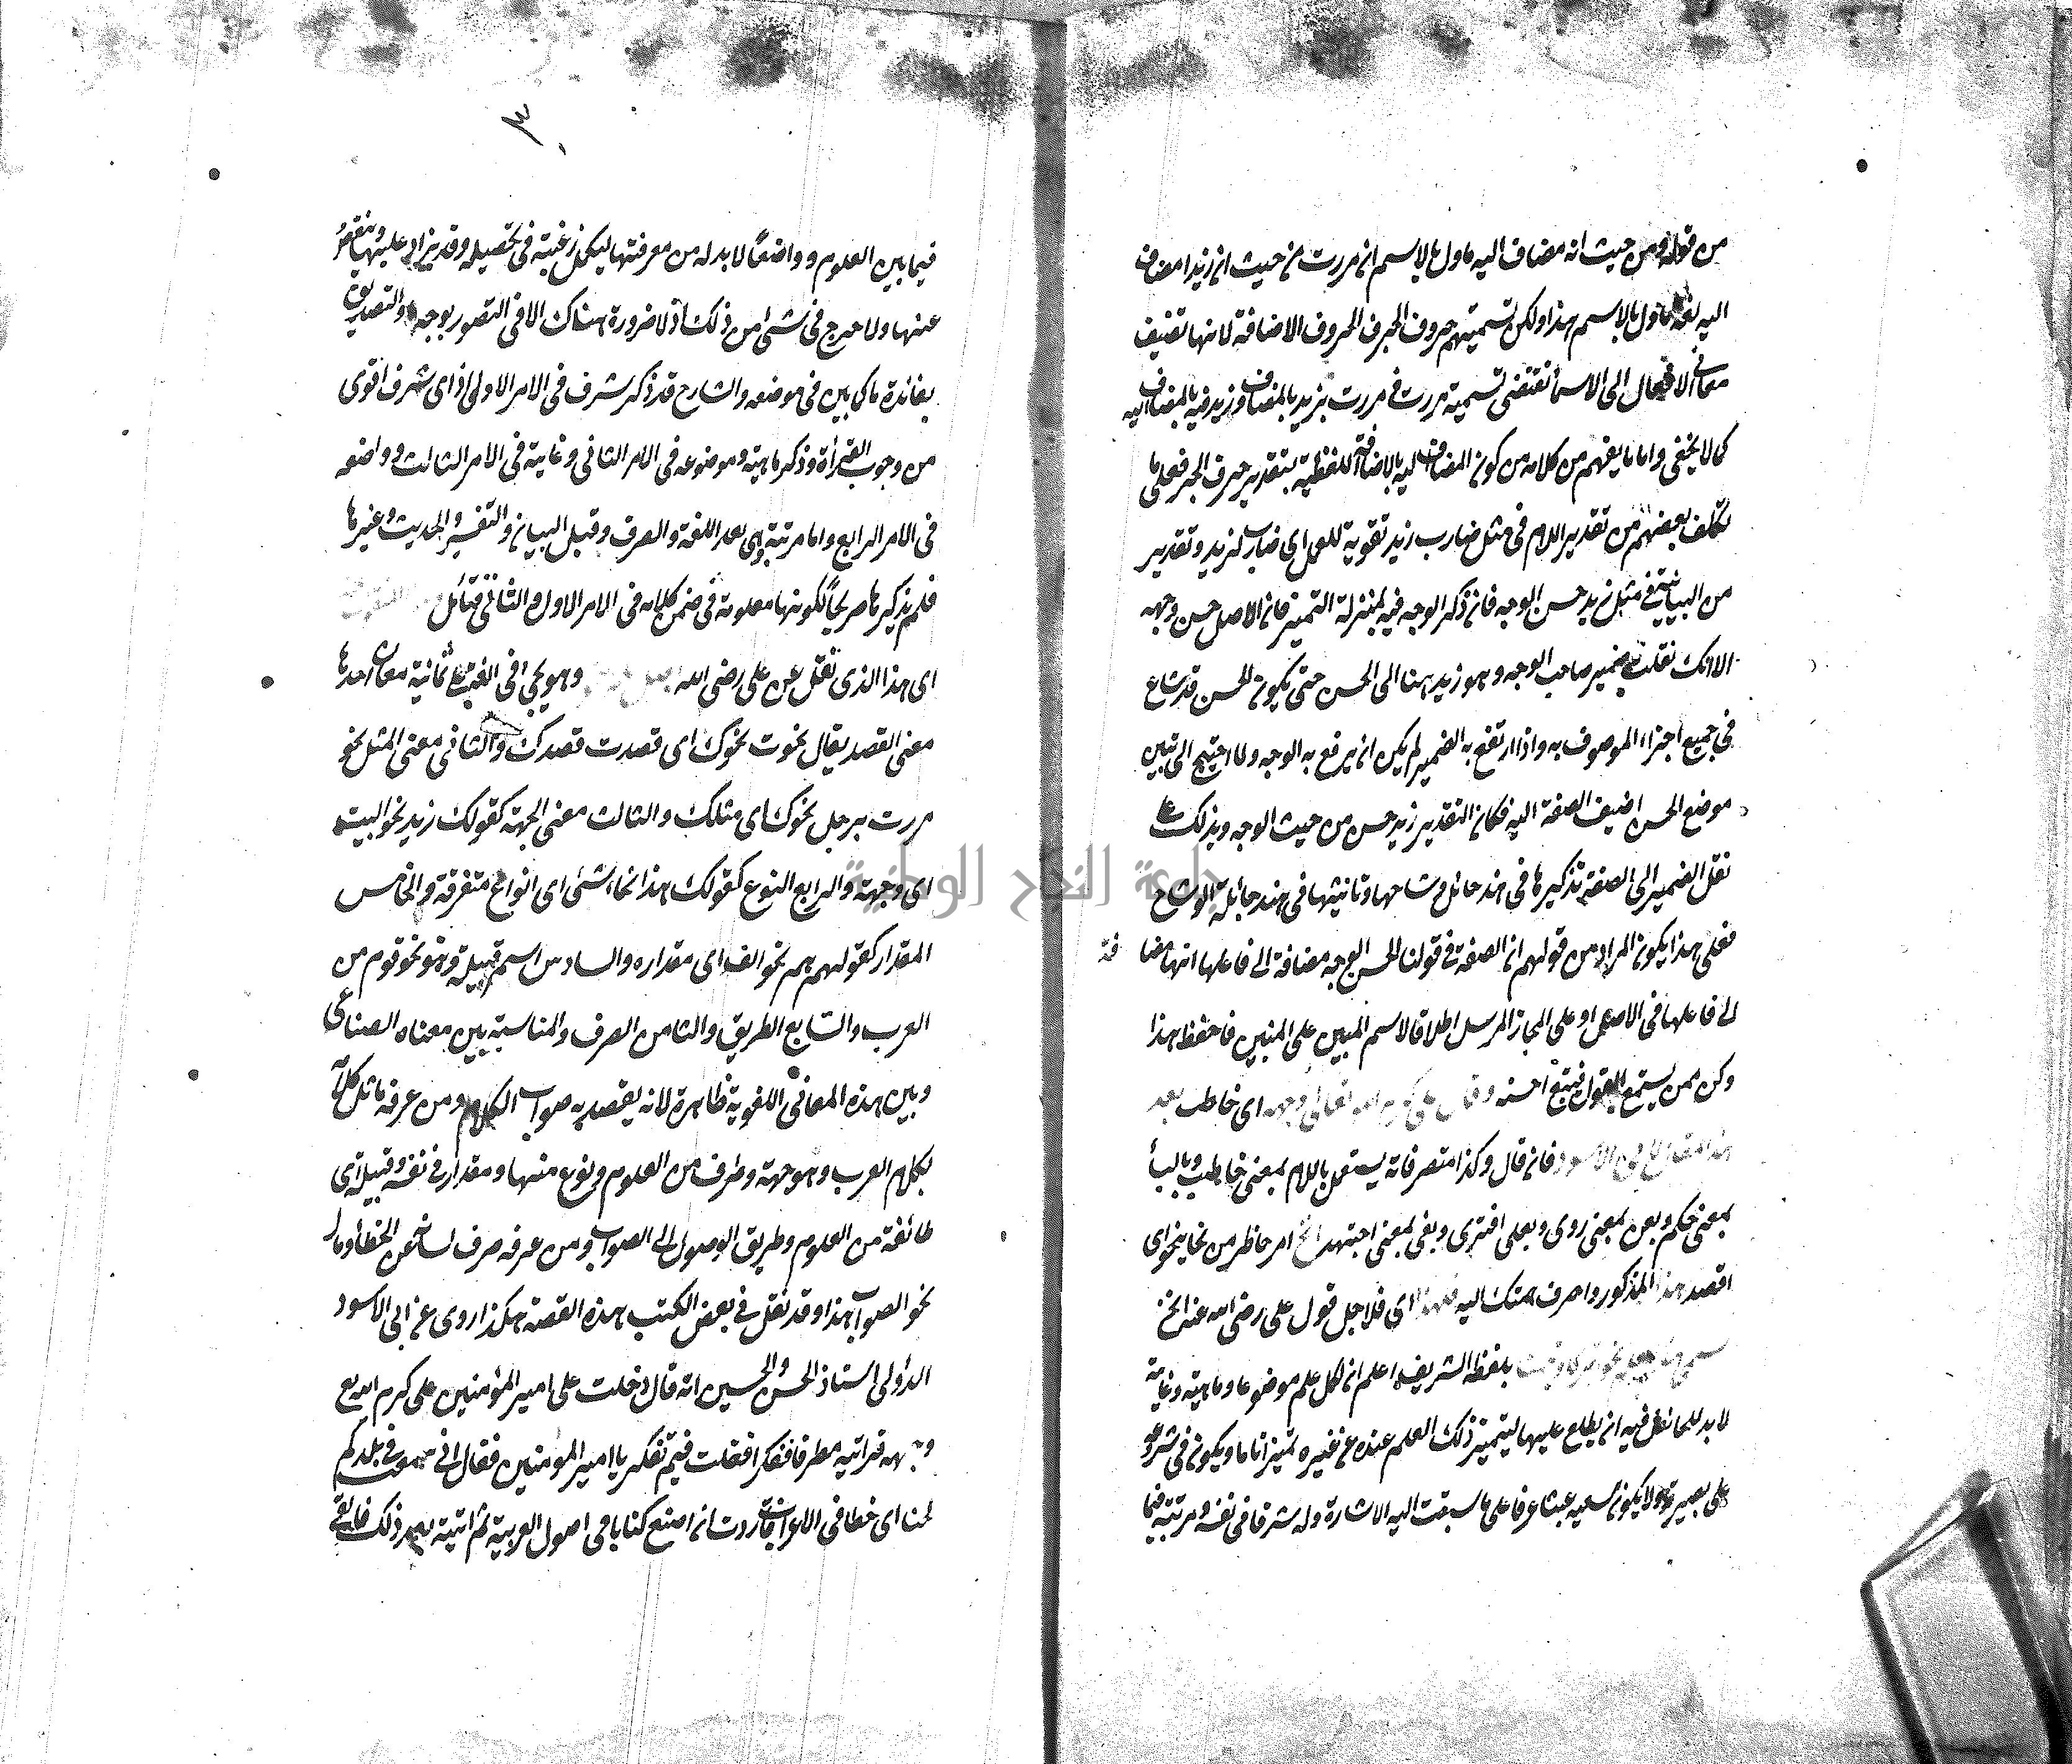 من قوله ومن حيث انه مضاف اليه ماول بالاسم ان مررت من حيث ان زيدا مضاف
اليه لفه ماول بالاسم هذا ولكن تسميتهم حروف الجر في الحروف الاضافة لانها تضيف
معانى الافعال الى الاسماء تقتضى تسمية مررت فى مررت بزيد بالمضاف وزيد فيه بالمضاف اليه
كما لا يخفى واما ما يفهم من كلامه من كون المضاف اليه بالاضافة اللفظية بتقدير حرف الجر فعلى ما
تكلف بعضهم من تقدير اللام فى مثل ضارب زيد تقوية للعمل اى ضارب لزيد وتقدير
من البيانية فى مثل زيد حسن الوجه فان ذكر الوجه فيه بمنزلة التميز فان الاصل حسن وجهه
الا انك نقلت ضمير صاحب الوجه وهو زيد هنا الى الحسن حتى يكون الحسن قد شاع
فى جميع اجزاء الموصوف به واذا ارتفع به الضمير لم يكن ان يرفع به الوجه ولما احتيج الى تبين
موضع الحسن اضيف الصفة اليه فكان التقدير زيد حسن من حيث الوجه ويذلك على
نقل الضمير الى الصفة تذكيرها فى هند حائل وشاحها وتانيثها فى هند حائلة الوشاح
فعلى هذا يكون المراد من قولهم ان الصفة فى قولنا الحسن الوجه مضافة الى فاعلها انها مضا فة
الى فاعلها فى الاصل او على المجاز المرسل اطلاقا لاسم المبين على المبين فاحفظ هذا
وكن ممن يستمع القول فيتبع احسنه وقال على كرم الله تعالى وجهه اى خاطب بعد
هذا المقال لابى الاسود فان قال وكذا متصرفاته يستعمل باللام بمعنى خاطب وبالباء
بمعنى حكم وبعن بمعنى روى وبعلى افترى وبفى بمعنى اجتهد انح امر حاظر من نحا ينحو اى
اقصد هذا المذكور واصرف همتك اليه فلهذا اى فلاجل قول على رضى الله عنه انح
سمى هذا العلم نحوا بلفظه الشريف اعلم ان لكل علم موضوعا وماهية وغاية
لا بد للماتفل فيه ان يطلع عليها ليتميز ذلك العلم عنده عن غيره تميزا تاما ويكون فى شروعه
على بصيرة ولا يكون سعيه عبثا عرفا على ما سبقت اليه الاشارة وله شرفا فى نفسه ومرتبة فيما
٣
فيما بين العلوم وواضعًا لا بد له من معرفتها ليكمل رغبته فى تحصيله وقد يزاد عليها وينقص
عنها ولا حرج فى شئ من ذلك اذ لا ضرورة هناك الا فى التصور بوجه والتصديق
بفائدة ما كما بين فى موضعه والشارح قد ذكر شرف فى الامر الاولى اذ اى شرف اقوى
من وجوب القراة وذكر ماهيته وموضوعه فى الامر الثانى وغايته فى الامر الثالث وواضعه
فى الامر الرابع واما مرتبته وهى بعد اللغة والصرف وقبل البيان والتفسير والحديث وغيرها
فلم يذكرها صريحًا لكونها معلومة فى ضمن كلامه فى الامر الاول والثانى فتائل
اى هذا الذى نقل عن على رضى الله وهو يجئ فى اللغة على ثمانية معان احدها
معنى القصد يقال نحوت نحوك اى قصدت قصدك والثانى معنى المثل نحو
مررت برجل نحوك اى مثلك والثالث معنى الجهة كقولك زيد نحو البيت
اى وجهته والرابع النوع كقولك هذا نحاء شئ اى انواع متفرقة والخامس
المقدار كقولهم هم نحو الف اى مقداره والسادس اسم قبيلة وهو نحو قوم من
العرب والسابع الطريق والثامن الصرف والمناسبة بين معناه الصناعى
وبين هذه المعانى اللغوية ظاهرة لانه يقتصد به صواب الكلام ومن عرفه ماثل كلامه
بكلام العرب وهو جهة وطرف من العلوم ونوع منها ومقدار فى نفسه وقبيلة اى
طائفة من العلوم وطريق الوصول الى الصواب ومن عرفه صرف لسانه عن الخطأ ومال
نحو الصواب هذا وقد نقل فى بعض الكتب هذه القصة هكذا روى عن ابى الاسود
الدؤلى استاذ الحسن والحسين انه قال دخلت على امير المؤمنين على كرم الله تع
وجهه فراتيه مطرقا ففكرا فقلت فيم تفكر يا امير المؤمنين فقال انى سمعت فى بلدكم
لحنا اى خطا فى الاعراب فاردت ان اصنع كتابا فى اصول العربية ثم اتيته بعد ذلك فالقى
جامعة النجاح الوطنية